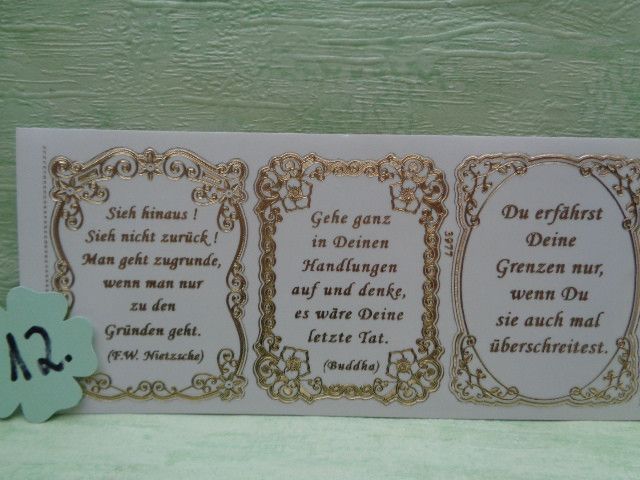 Sieh hinaus !
Sieh nicht zurück !
Man geht zugrunde,
wenn man nur
zu den
Gründen geht.
(F.W. Nietzsche)
Gehe ganz
in Deinen
Handlungen
auf und denke,
es wäre Deine
letzte Tat.
(Buddha)
3977
Du erfährst
Deine
Grenzen nur,
wenn Du
sie auch mal
überschreitest.
12.